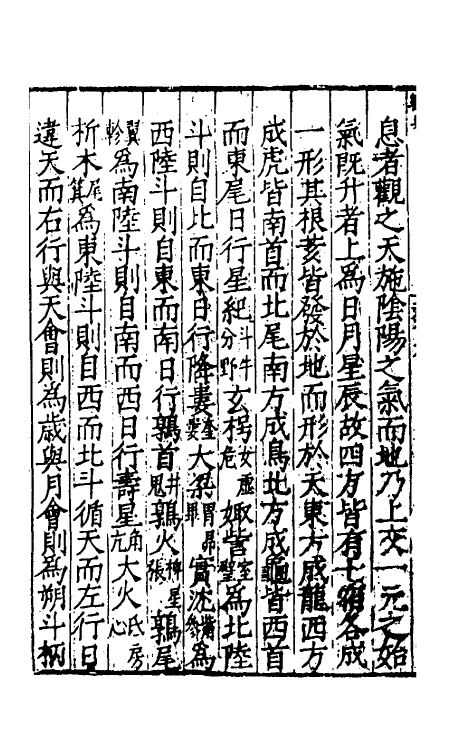 息者觀之天施陰陽之氣而地乃上交一元之始
氣旣升者上爲日月星辰故四方皆有七宿各成
一形其根荄皆發於地而形於天東方成龍西方
成虎皆南首而北尾南方成鳥北方成龜皆西首
而東尾日行星紀分野斗牛玄枵女虛危娵訾室壁爲北陸
斗則自北而東日行降婁奎婁大梁胃昴畢實沈觜參爲
西陸斗則自東而南日行鶉首井鬼鶉火柳星張鶉尾
翼軫爲南陸斗則自南而西日行壽星角亢大火氐房心
析木尾箕爲東陸斗則自西而北斗循天而左行日
違天而右行與天會則爲歲與月會則爲朔斗柄